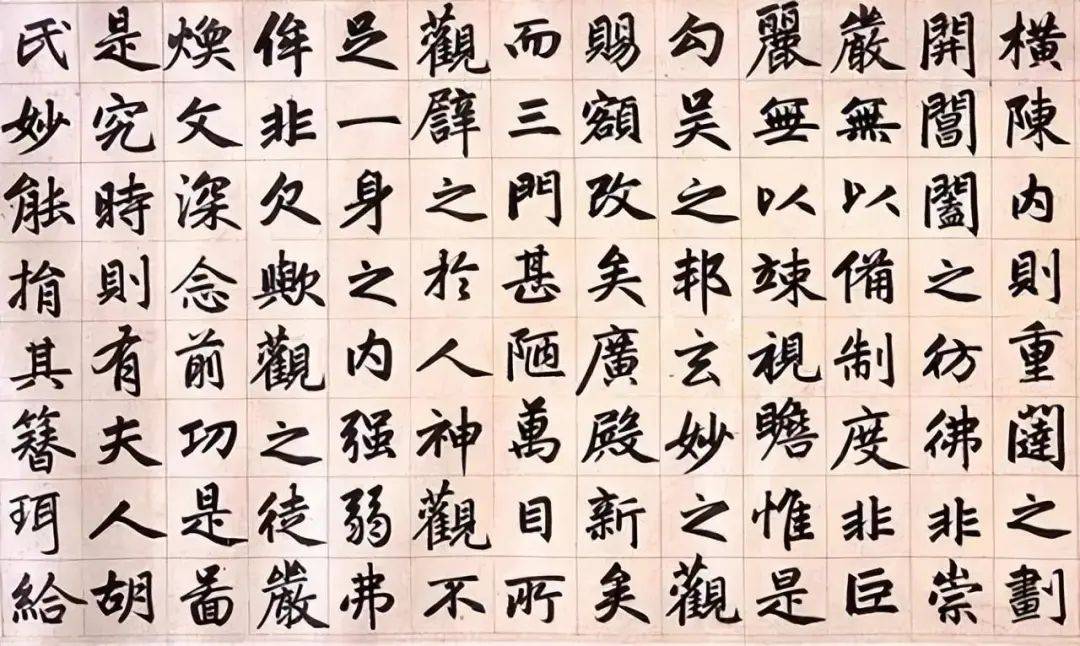 橫陳内則重闥之劃
開閶闔之彷彿非崇
嚴無以備制度非巨
麗無以竦視瞻惟是
勾吴之邦玄妙之觀
賜額改矣廣殿新矣
而三門甚陋萬目所
觀譬之於人神觀不
足一身之内强弱弗
侔非欠歟觀之徒嚴
煥文深念前功是圖
是究時則有夫人胡
氏妙能捐其簪珥給